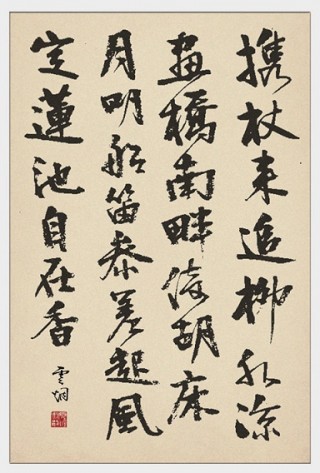 携杖来追柳外涼
画橋南畔倚胡床
月明船笛参差起風
定蓮池自在香
雲烱